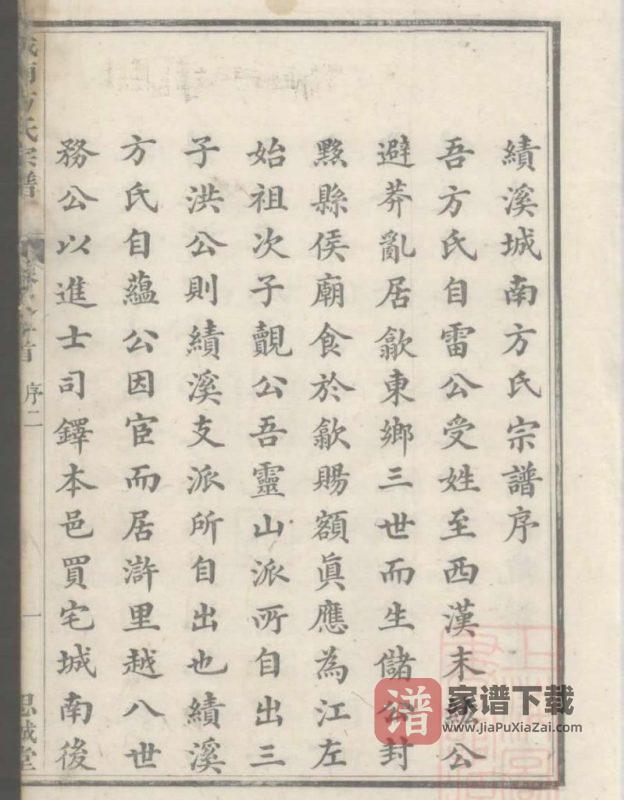 績溪城南方氏宗譜序
吾方氏自雷公受姓至西漢末紘公
避莽亂居歙東鄉三世而生儲公封
黟縣侯廟食於歙賜額眞應為江左
始祖次子覿公吾靈山派所自出三
子洪公則績溪支派所自出也績溪
方氏自蘊公因宦而居滸里越八世
務公以進士司鐸本邑買宅城南後
城南方氏宗譜
卷之首 序二
一
思誠堂
譜
家谱下载
www.JiaPuXiaZai.com